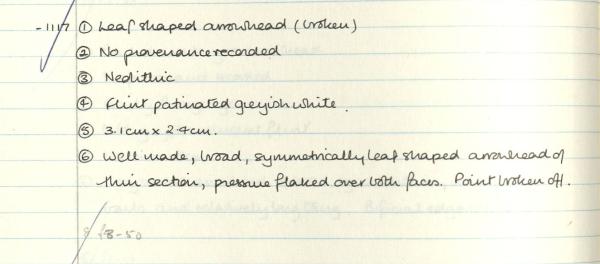 -1117 ① Leaf shaped arrowhead (broken)
② No provenance recorded
③ Neolithic
④ Flint patinated greyish white.
⑤ 3.1cm x 2.4cm.
⑥ Well made, broad, symmetrically leaf shaped arrowhead of
thin section, pressure flaked over both faces. Point broken off.
8-50